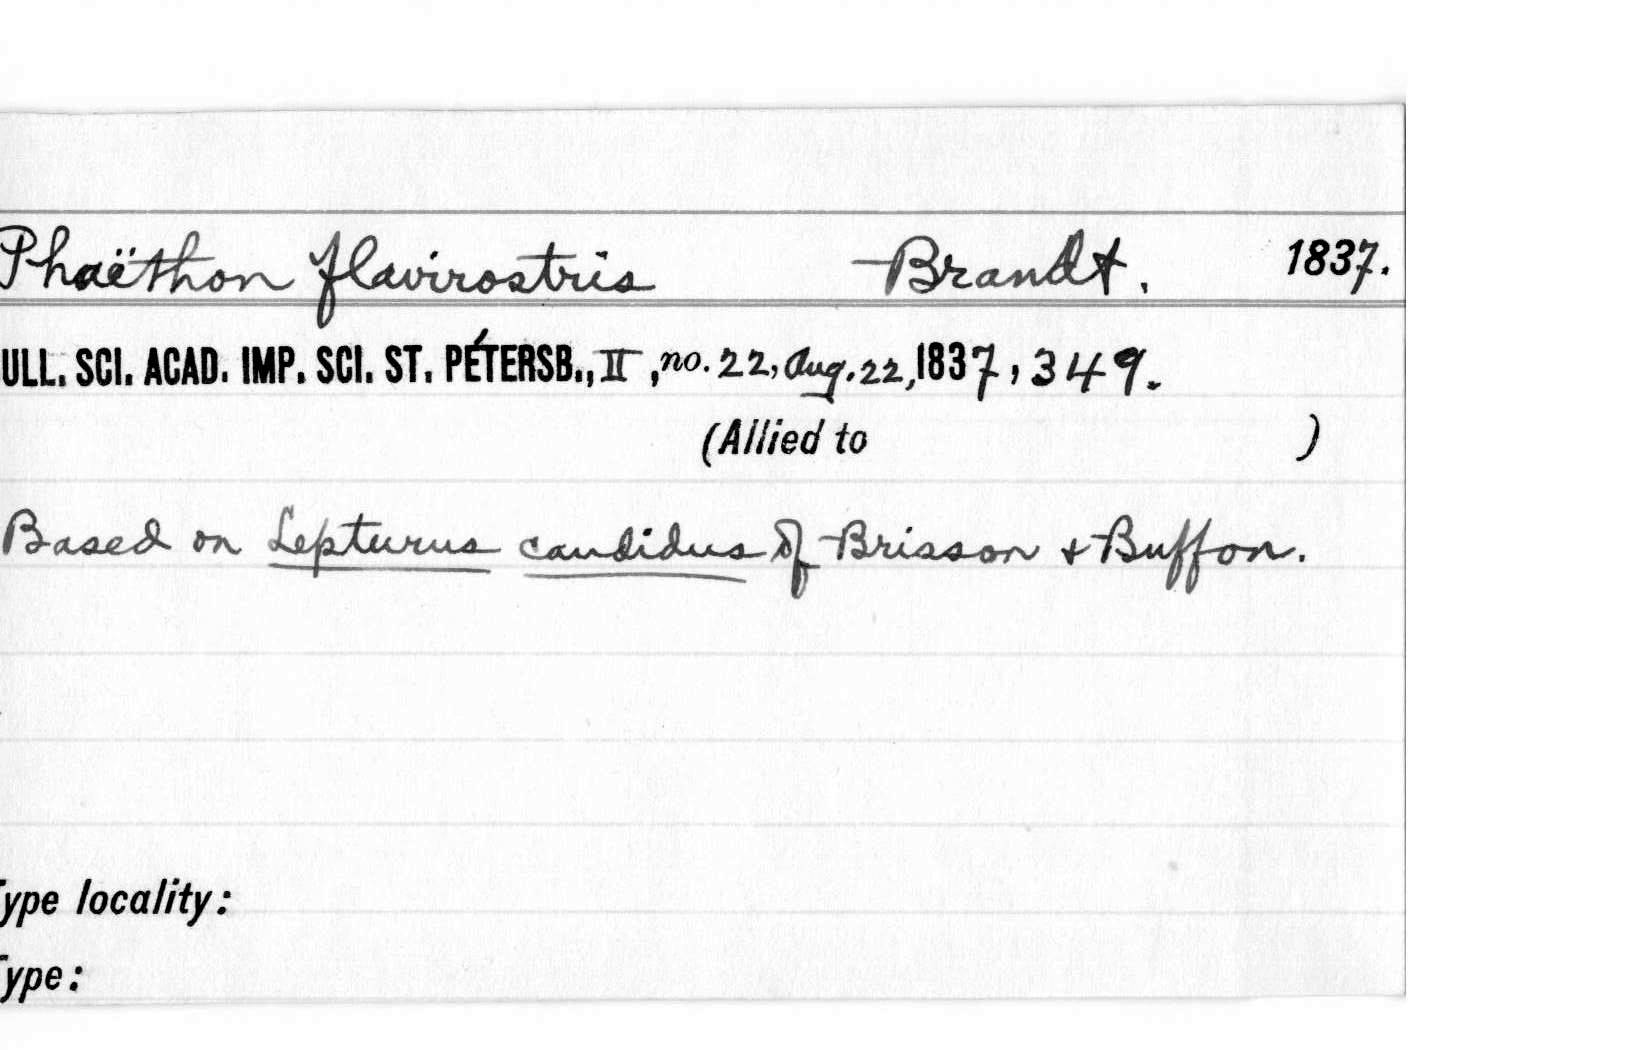 Phaëthon flavirostris Brandt. 1837.
ULL. SCI. ACAD. IMP. SCI. ST. PÉTERSB., II, no. 22, Aug. 22, 1837, 349.
(Allied to )
Based on Lepturus candidus of Brisson & Buffon.
ype locality:
ype: